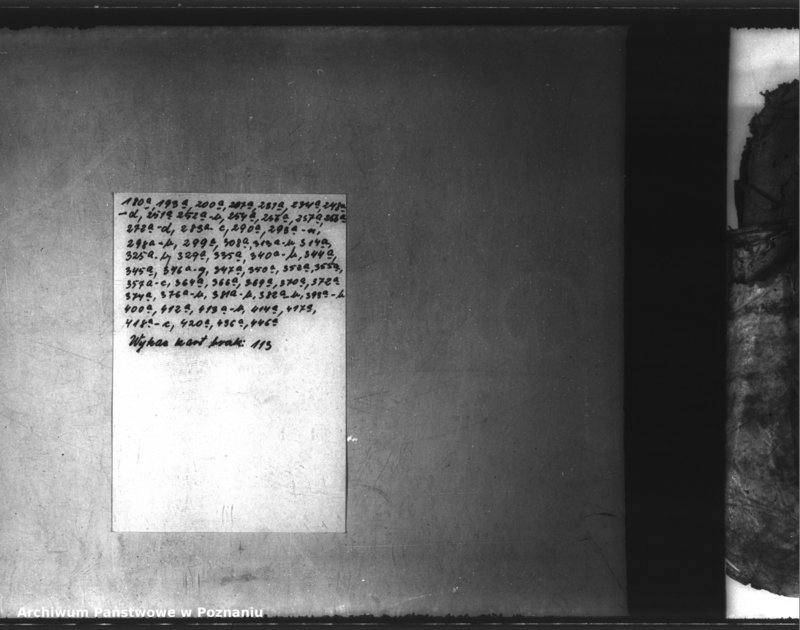 180a, 193a, 200a, 207a, 231a, 234a, 248a
-d, 251a 252a-b, 254a, 256a, 257a, 266a
272a-d, 283a-c, 290a, 293a-n,
298a-b, 299a, 308a, 313a-b, 314a,
325a-b, 329a, 335a, 340a-b, 344a,
345a, 346a-g, 347a, 350a, 352a, 355a,
357a-c, 364a, 366a, 369a, 370a, 372a
374a, 376a-b, 381a-b, 382a-b, 393a-b
400a, 412a, 413a-b, 414a, 417a,
418a-c, 420a, 436a, 446a
Wykaz kart brak: 113
Archiwum Państwowe w Poznaniu